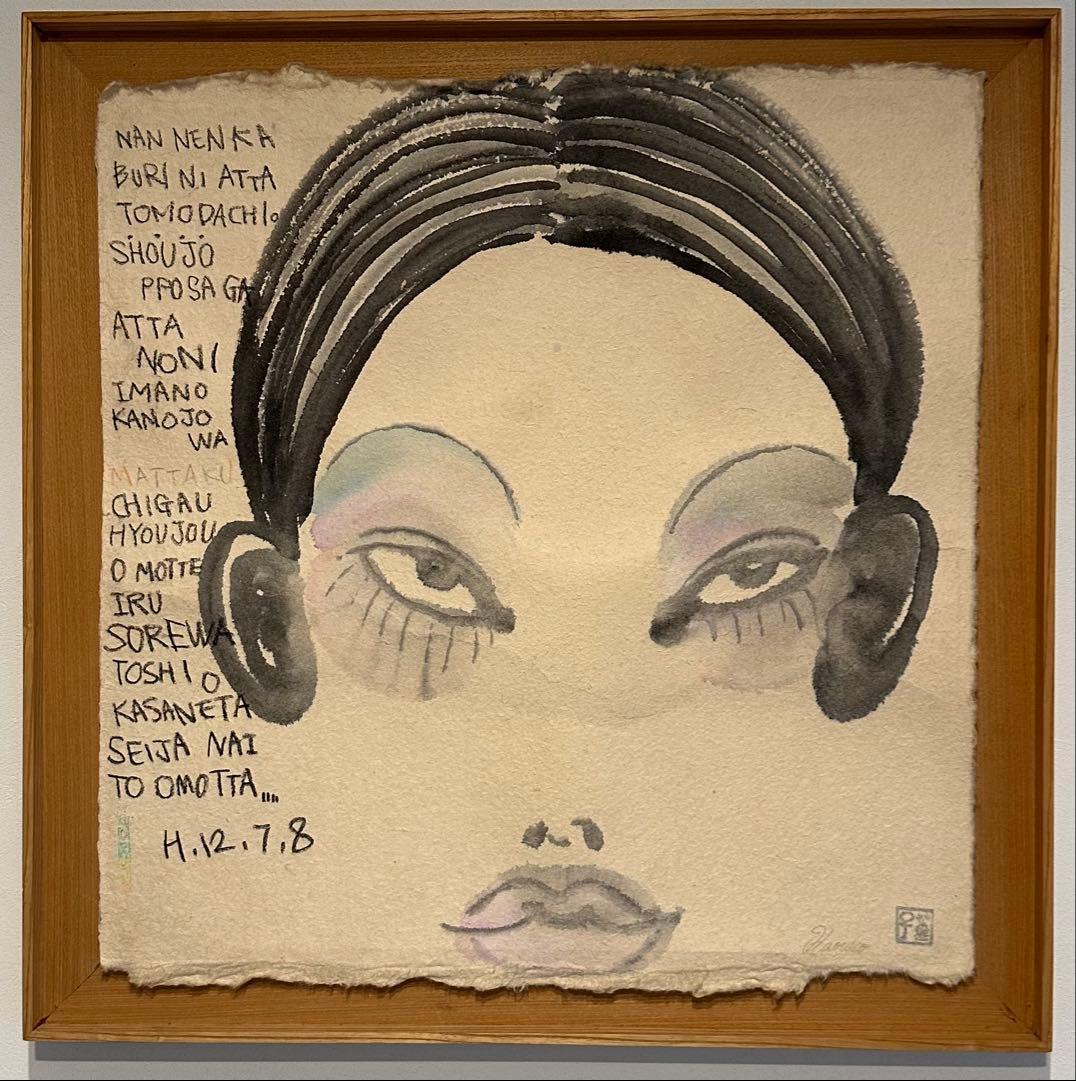 NAN NENKA
BURI NI ATTA
TOMODACHI。
SHOUJO
PPOSA GA
ATTA
NONI
IMANO
KANOJO
WA
MATTAKU
CHIGAU
HYOUJOU
O MOTTE
IRU
SOREWA
TOSHI O
KASANETA
SEIJA NAI
TO OMOTTA....
H.12.7.8